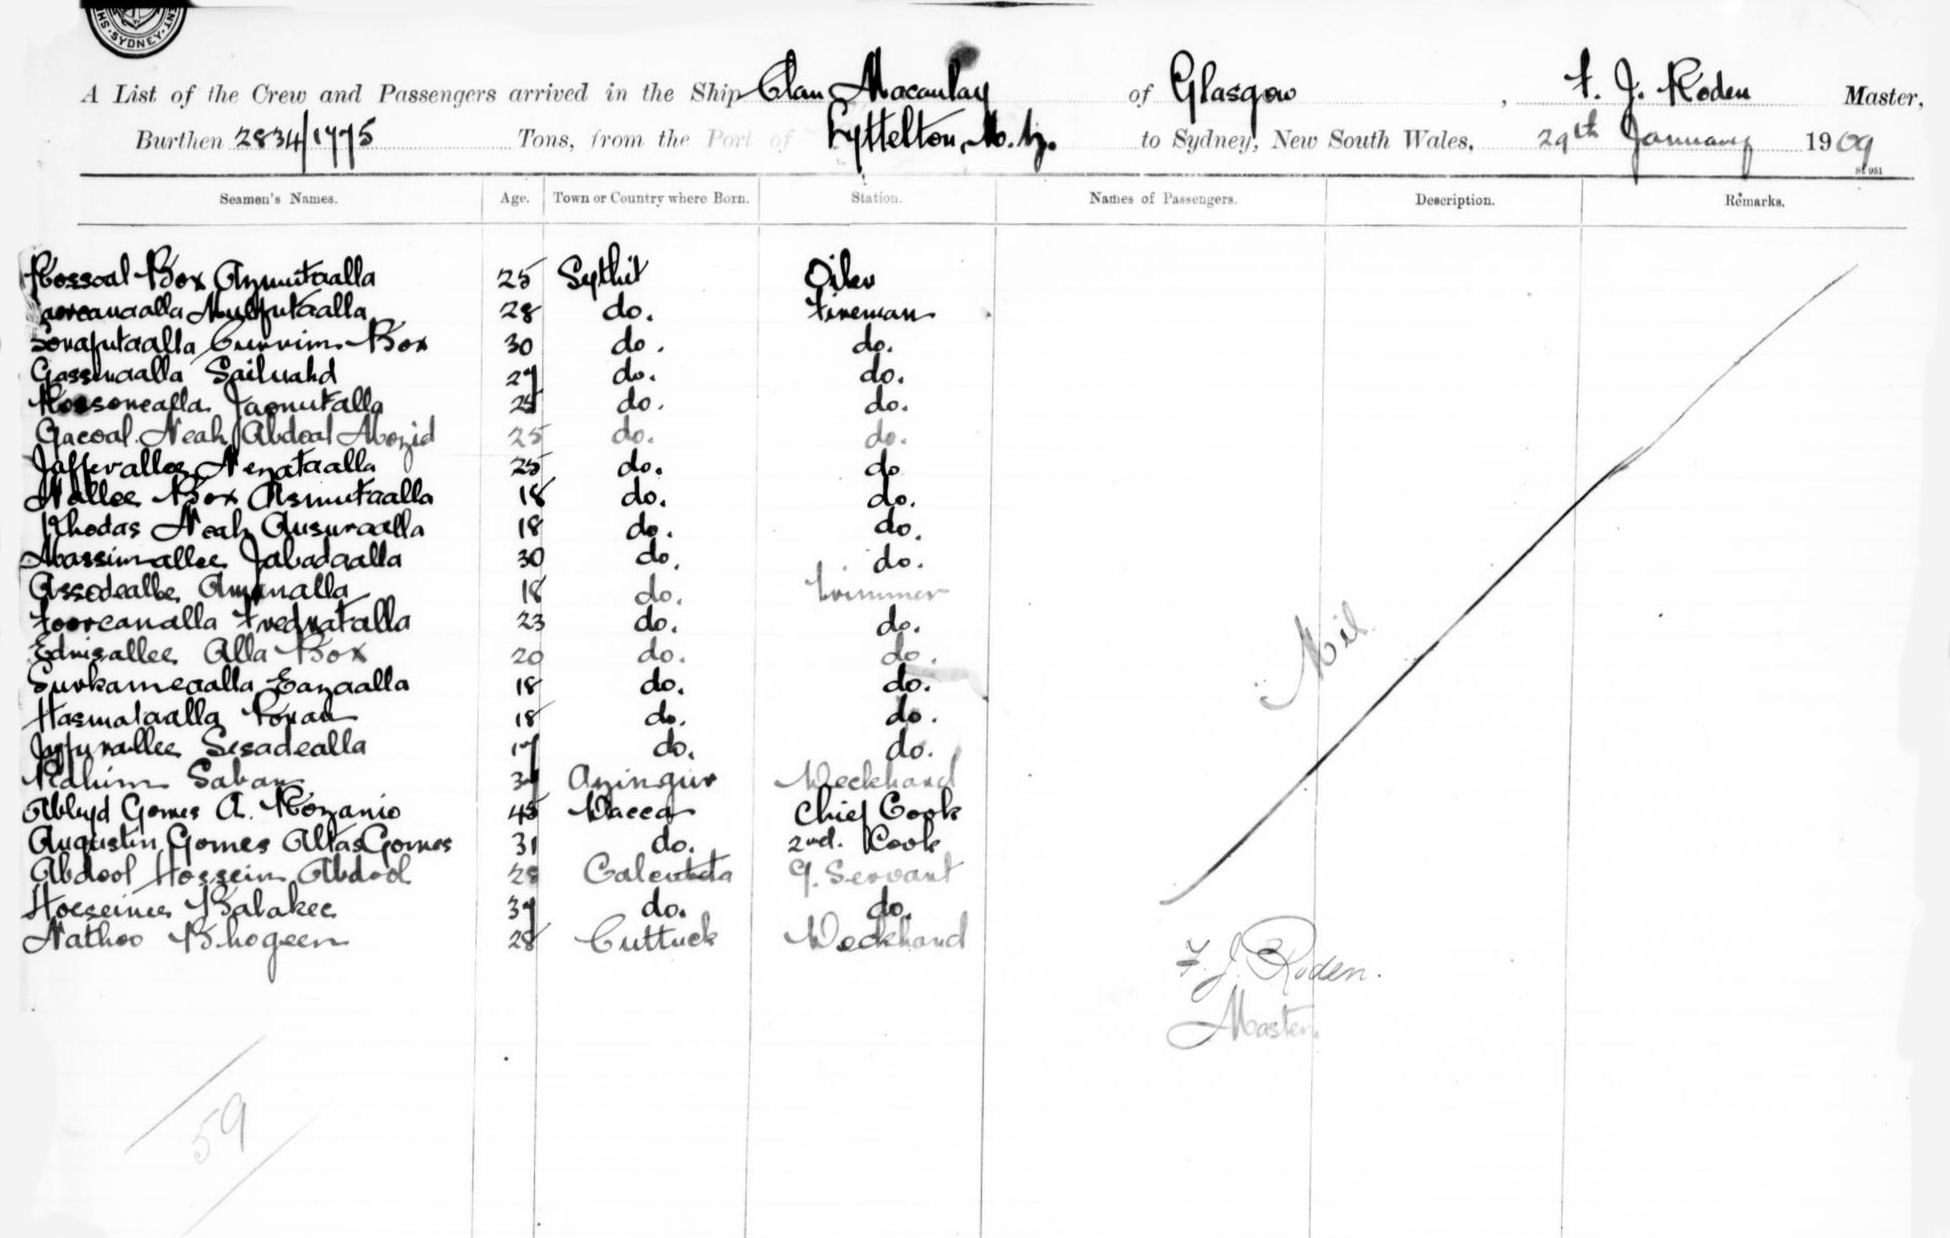 SYDNEY
A List of the Crew and Passengers arrived in the Ship Clan Macaulay of Glasgow, F. J. Roden Master,
Burthen 2834/1775 Tons, from the Port of Lyttelton, N.Z. to Sydney, New South Wales, 29th January 1909
Seamen's Names. Age. Town or Country where Born. Station. Names of Passengers. Description. Remarks.
Rossoal Box Azmutaalla 25 Sythit Oiler
28 do. Fireman
Sonafutaalla Currim Box 30 do. do.
Gassinaalla 27 do. do.
25 do. do.
Gacoal Neah Abdoal Abozid 25 do. do.
Jaffervallee Nezataalla 25 do. do
Nallee Box Asmutaalla 18 do. do.
Khodas Neah 18 do. do.
Massimallee Jabadaalla 30 do. do.
Assodealbe Amanalla 18 do. Trimmer
Fooreanalla 23 do. do.
Ednisallee Alla Box 20 do. do.
Surkameaalla Eanaalla 18 do. do.
Hasmataalla 18 do. do.
Sesadealla 17 do. do.
Saban Azingur Deckhand
Gomes A. Rozanio 45 Dacca Chief Cook
Augustin Gomes Altas Gomes 31 do. 2nd. Cook
Abdool Hossein Abdool 28 Calcutta G. Servant
Balakee 37 do. do.
Nathoo Bhogeen 28 Cuttuck Deckhand
Nil
F. J. Roden.
Master.
59